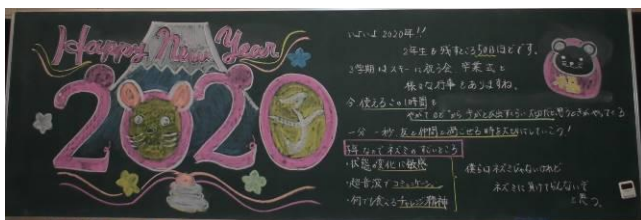 Happy New Year
2020
子
いよいよ2020年!!
2年生も残すところ50日ほどです。
3学期はスキーに祝う会、卒業式と
様々な行事とありますね。
今使えるこの1時間を
やがて
思うときがやってくる
一分一秒、友と仲間と過ごせる時を大切にしていこう!
子年なのでネズミのすごいところ
・状態の変化に敏感
・超音波でコミュニケーション
・何でも食べるチャレンジ精神
僕らはネズミじゃないけれど
ネズミに負けてられないぞ
と思う。